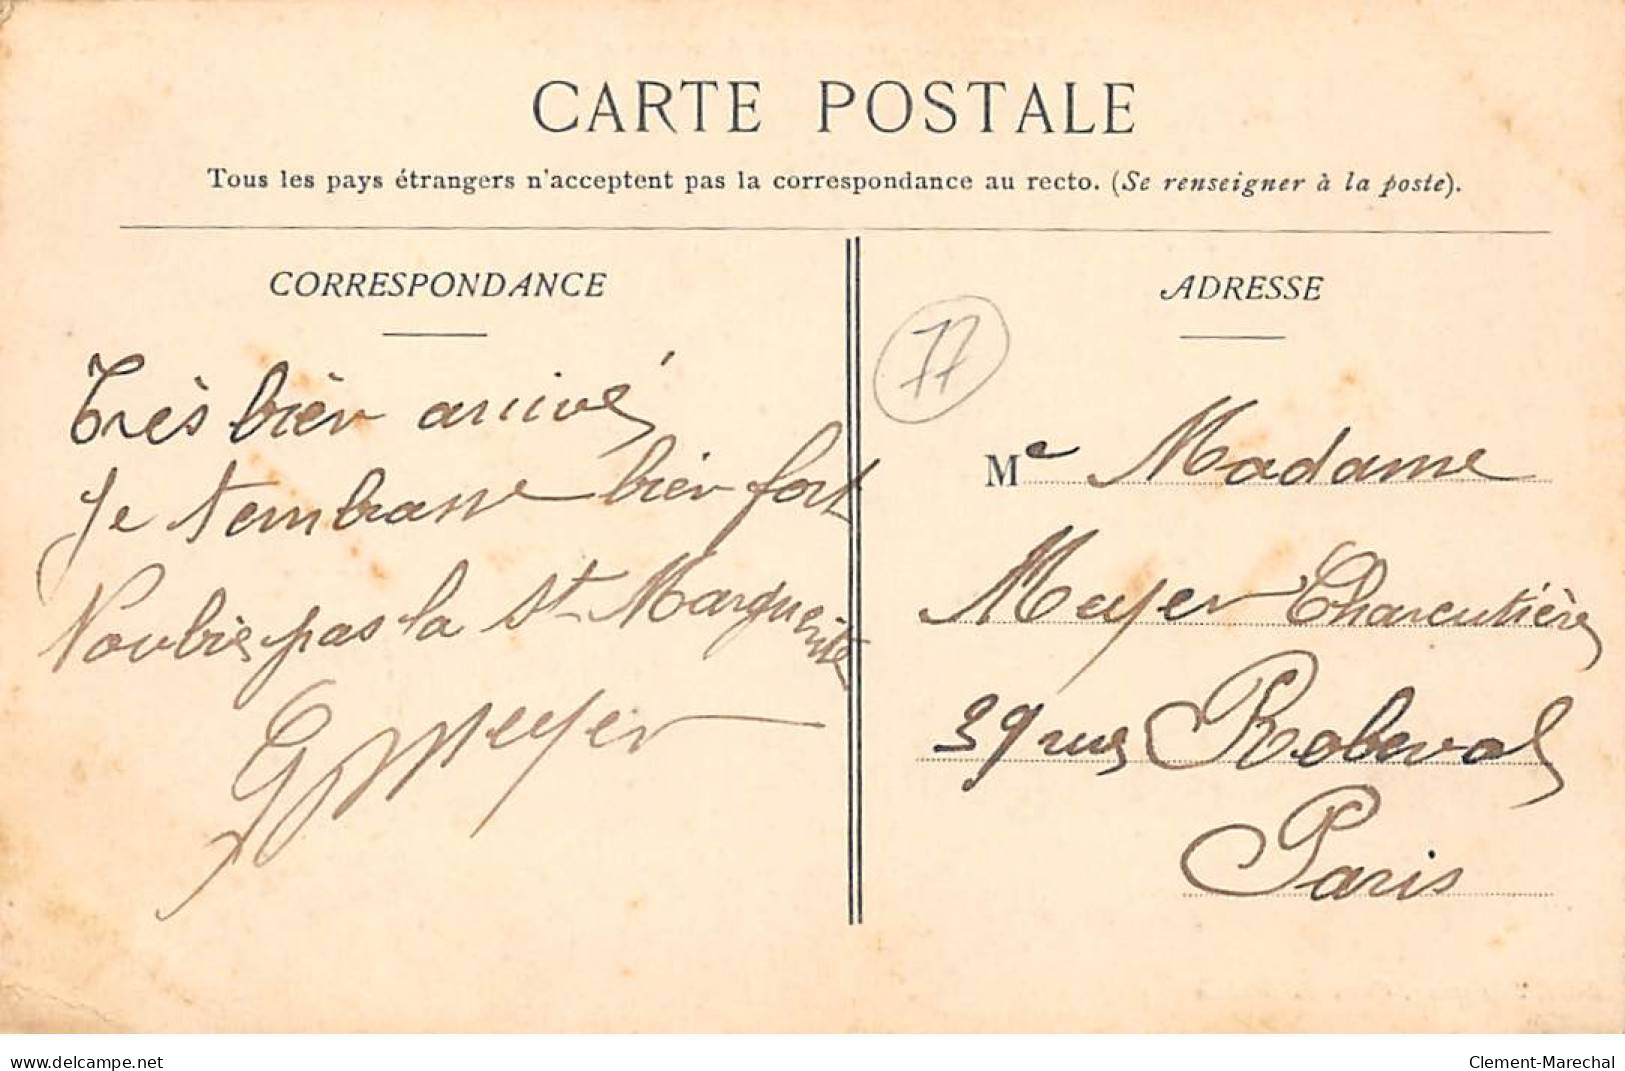 CARTE POSTALE
Tous les pays étrangers n'acceptent pas la correspondance au recto. (Se renseigner à la poste).
CORRESPONDANCE
Très bien arrivé
Je t'embrasse bien fort
N'oublie pas la St Marguerite
G Meyer
ADRESSE
77
Me Madame
Meyer Charcutière
39 rue Roberval
Paris
www.delcampe.net
Clement-Marechal